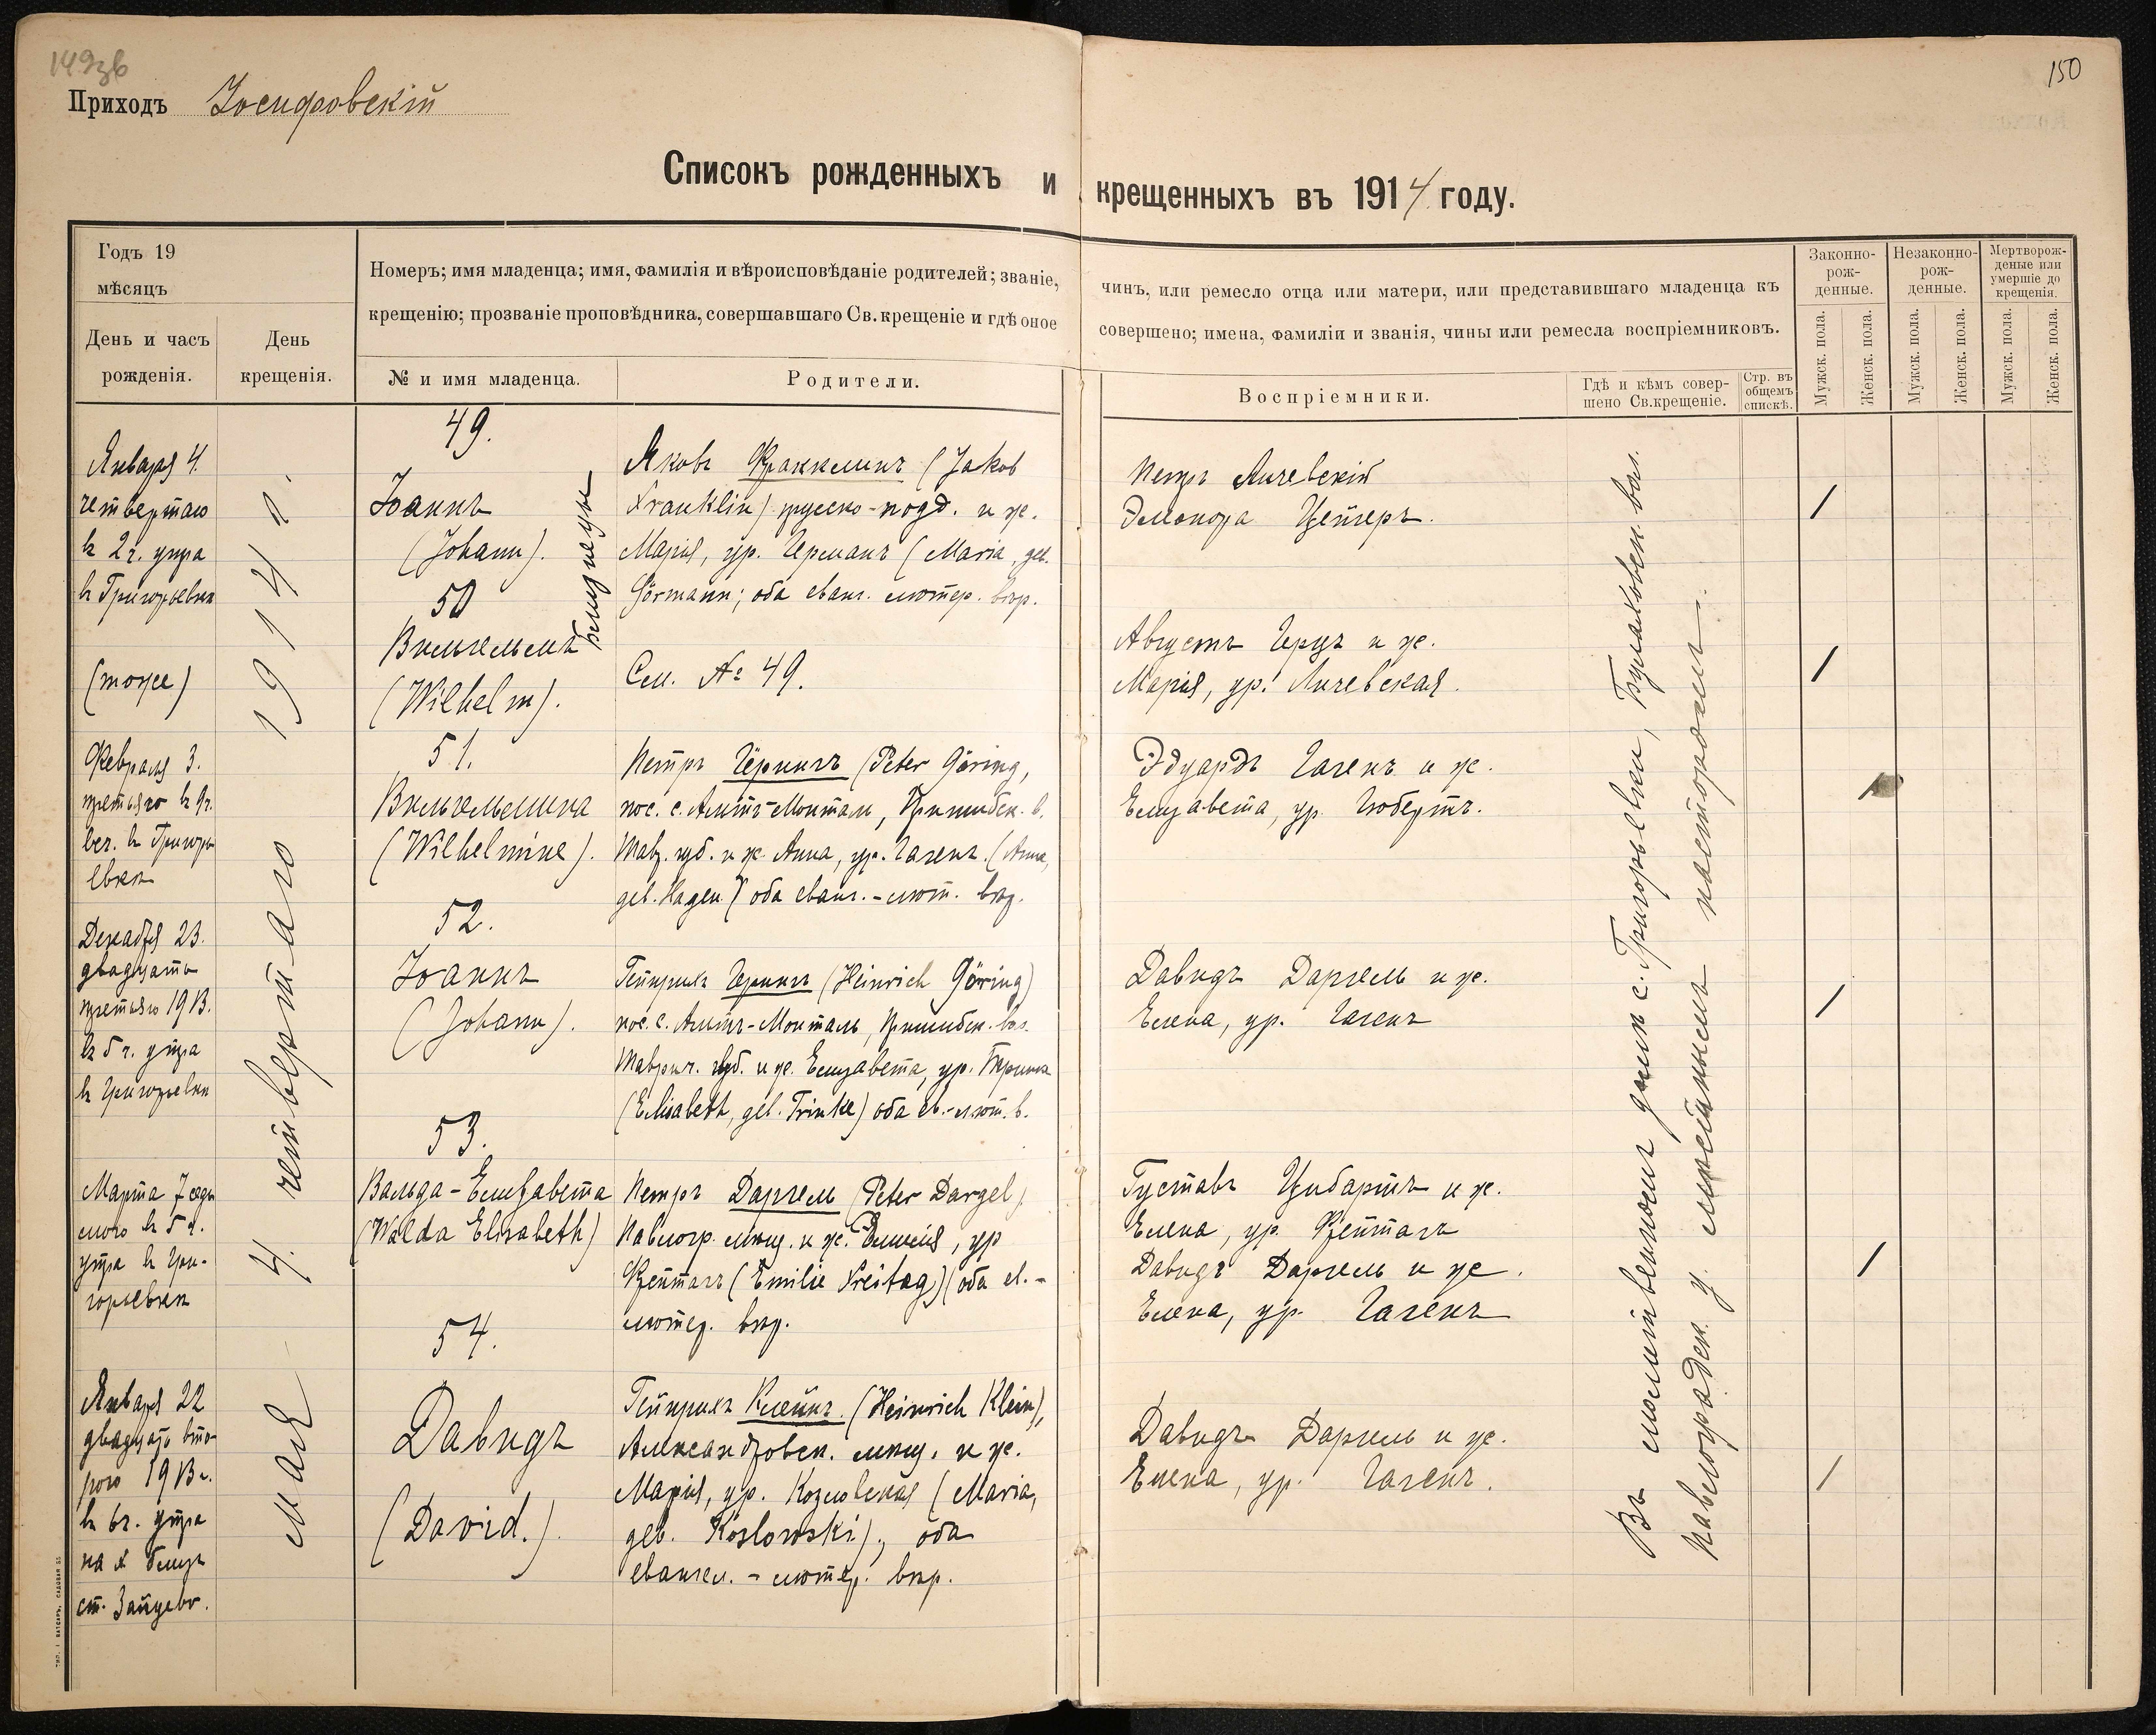 149зв
150
Приходъ Іосифовскій
Списокъ рожденныхъ и крещенныхъ въ 1914 году.
Годъ 19
мѣсяцъ
День и часъ
рожденія.
День
крещенія.
Номеръ; имя младенца; имя, фамилія и вѣроисповѣданіе родителей; званіе,
чинъ, или ремесло отца или матери, или представившаго младенца къ
крещенію; прозваніе проповѣдника, совершавшаго Св. крещеніе и гдѣ оное
совершено; имена, фамиліи и званія, чины или ремесла воспріемниковъ.
№ и имя младенца.
Родители.
Воспріемники.
Гдѣ и кѣмъ совер-
шено Св.крещеніе.
Стр. въ
общемъ
спискѣ.
Законно-
рож-
денные.
Незаконно-
рож-
денные.
Мертворож-
деные или
умершіе до
крещенія.
Мужск. пола.
Женск. пола.
Мужск. пола.
Женск. пола.
Мужск. пола.
Женск. пола.
Мая 4. четвертаго 1914 г.
Въ молитвенномъ домѣ с. Григорьевки, Булаховск. вол.
Павлоградск. у. мѣстнымъ пасторомъ.
Января 4.
четвертаго
въ 2 ч. утра
въ Григорьевкѣ
49.
Іоаннъ
(Johann).
близнецы
Яковъ Франклинъ (Jakob
Franklin) русско-подд. и ж.
Марія, ур. Германъ (Maria, geb.
Görmann; оба еванг. лютер. вѣр.
Петръ Личевскій
Элеонора Цейгеръ.
(тоже)
50
Вильгельмъ
(Wilhelm).
См. № 49.
Августъ Герцъ и ж.
Марія, ур. Личевская.
Февраля 3.
третьяго въ 9 ч.
веч. въ Григорь-
евкѣ
51.
Вильгельмина
(Wilhelmine).
Петръ Герингъ (Peter Göring,
пос. с. Альтъ-Монталь, Пришибск. в.
Тавр. губ. и ж. Анна, ур. Гагенъ. (Anna,
geb. Hagen) оба еванг.-лют. вѣр.
Эдуардъ Гагенъ и ж.
Елизавета, ур. Гюбертъ.
Декабря 23.
двадцать
третьяго 1913.
въ 5 ч. утра
въ Григорьевкѣ
52.
Іоаннъ
(Johann).
Гейнрихъ Герингъ (Heinrich Göring)
пос. с. Альтъ-Монталь, Пришибск. вол.
Таврич. губ. и ж. Елизавета, ур. Тринке
(Elisabeth, geb. Trinke) оба ев.-лют. в.
Давидъ Даргель и ж.
Елена, ур. Гагенъ
Марта 7 седь
мого въ 5 ч.
утра въ Гри-
горьевкѣ
53.
Вальда-Елизавета
(Walda Elisabeth)
Петръ Даргель (Peter Dargel)
Павлогр. мѣщ. и ж. Эмилія, ур
Фрейтагъ (Emilie Freitag) (оба ев.-
лютер. вѣр.
Густавъ Цибартъ и ж.
Елена, ур. Фрейтагъ
Давидъ Даргель и ж.
Елена, ур. Гагенъ
Января 22
двадцать вто-
рого 1913 г.
въ 6 ч. утра
на х близъ
ст. Зайцево.
54.
Давидъ
(David.).
Гейнрихъ Клейнъ. (Heinrich Klein),
Александровск. мѣщ. и ж.
Марія, ур. Козловская (Maria,
geb. Koslowski); оба
евангел.-лютер. вѣр.
Давидъ Даргель и ж.
Елена, ур. Гагенъ.